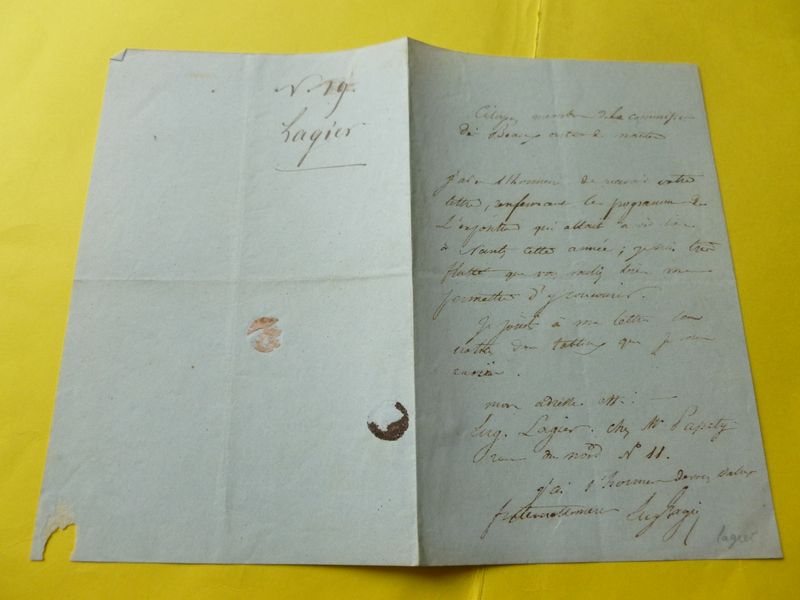 N. 19.
Lagier
Citoyen membre de la commission
de Beaux arts de nantes
j'ai l'honneur de recevoir votre
lettre, renfermant le programme de
L'exposition qui allait avoir lieu
à Nantes cette année; je suis très
flatté que vous me
permettre d'y concourir.
Je joint à ma lettre
des tableaux que je
mon adresse est: —
Eug. Lagier. chez Mr Papety
rue du nord No 11.
j'ai l'honneur de vous saluer
fraternellement Eug Lagier
lagier